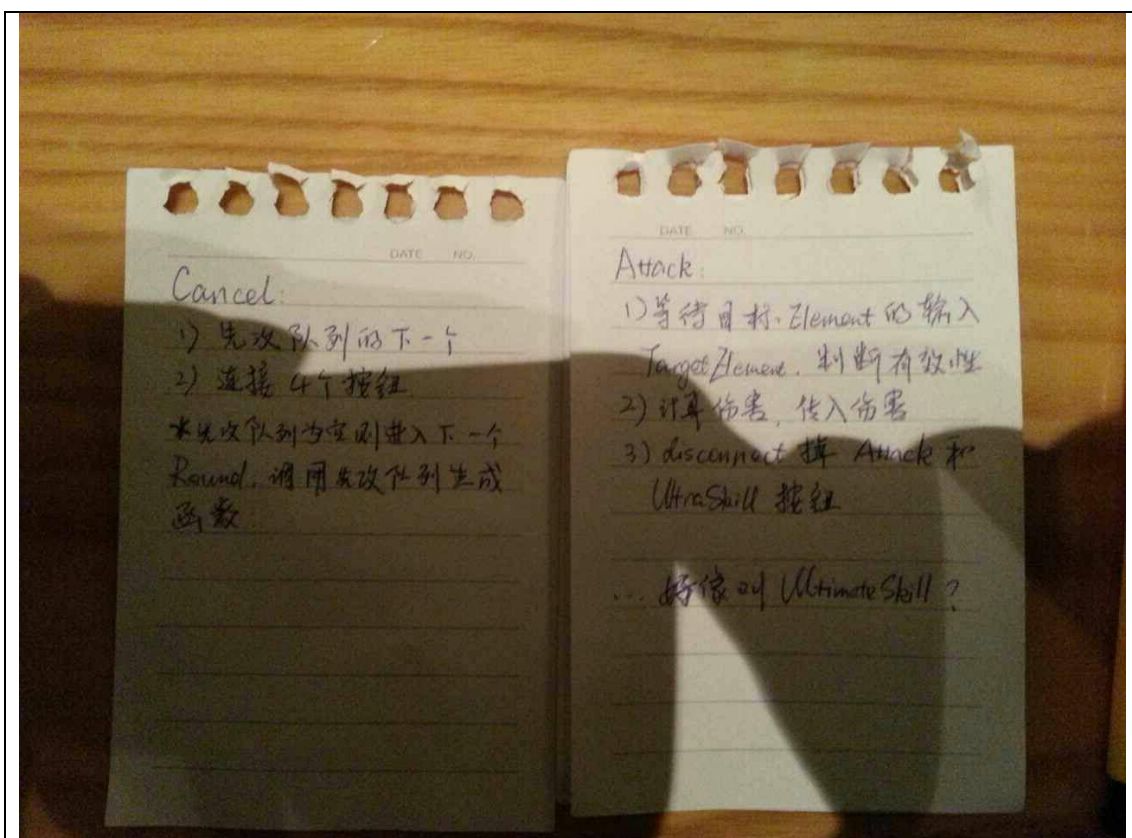 DATE NO.
Cancel:
1) 先攻队列的下一个
2) 连接4个按钮
*先攻队列为空则进入下一个
Round,调用先攻队列生成
函数
DATE NO.
Attack:
1)等待目标Element的输入
TargetElement,判断有效性
2)计算伤害,传入伤害
3)disconnect掉 Attack和
UltraSkill 按钮
...好像叫 UltimateSkill?